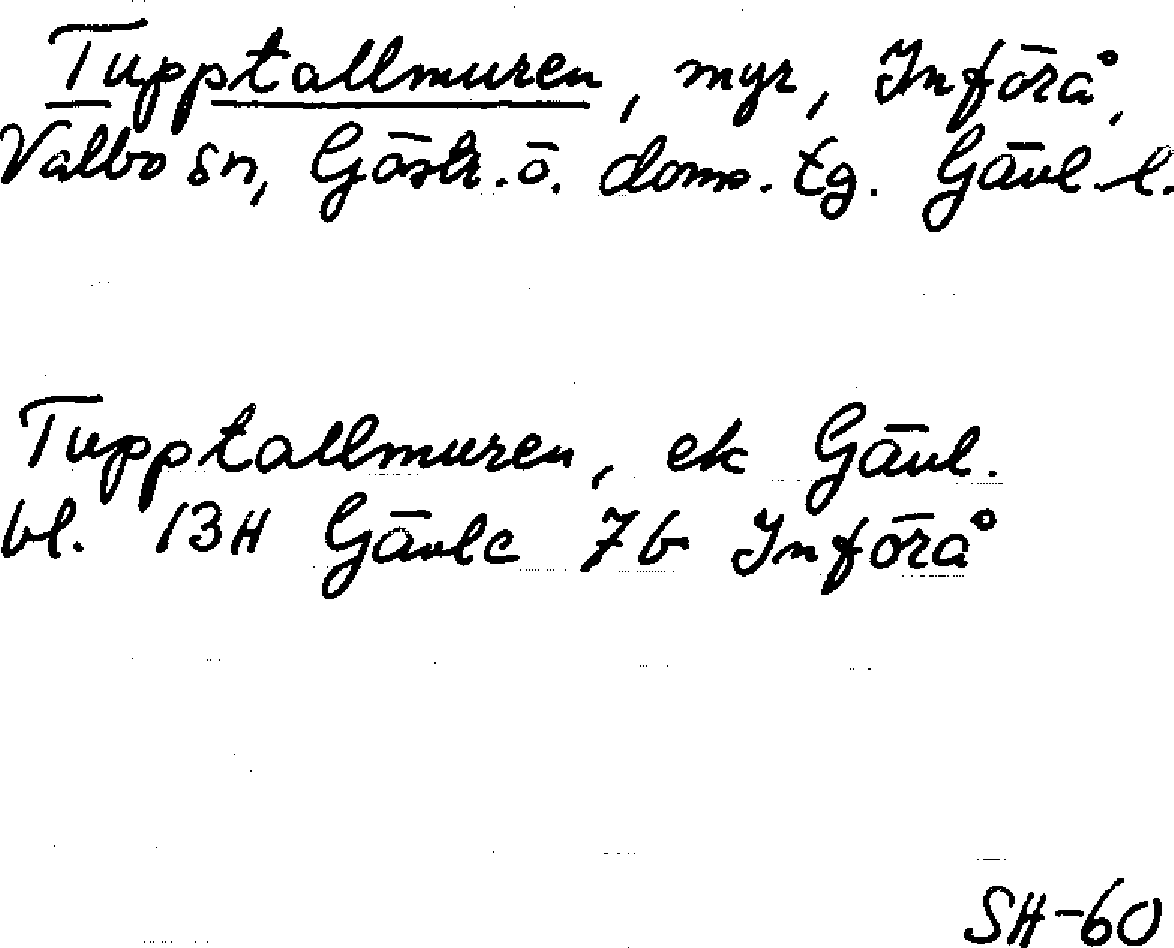 Tupptallmuren, myr, Införå,
Valbo sn, Gästr. ö. doms. tg. Gävl. l.
Tupptallmuren, ek Gävl.
bl. 13H Gävle 7b Införå
SH-60